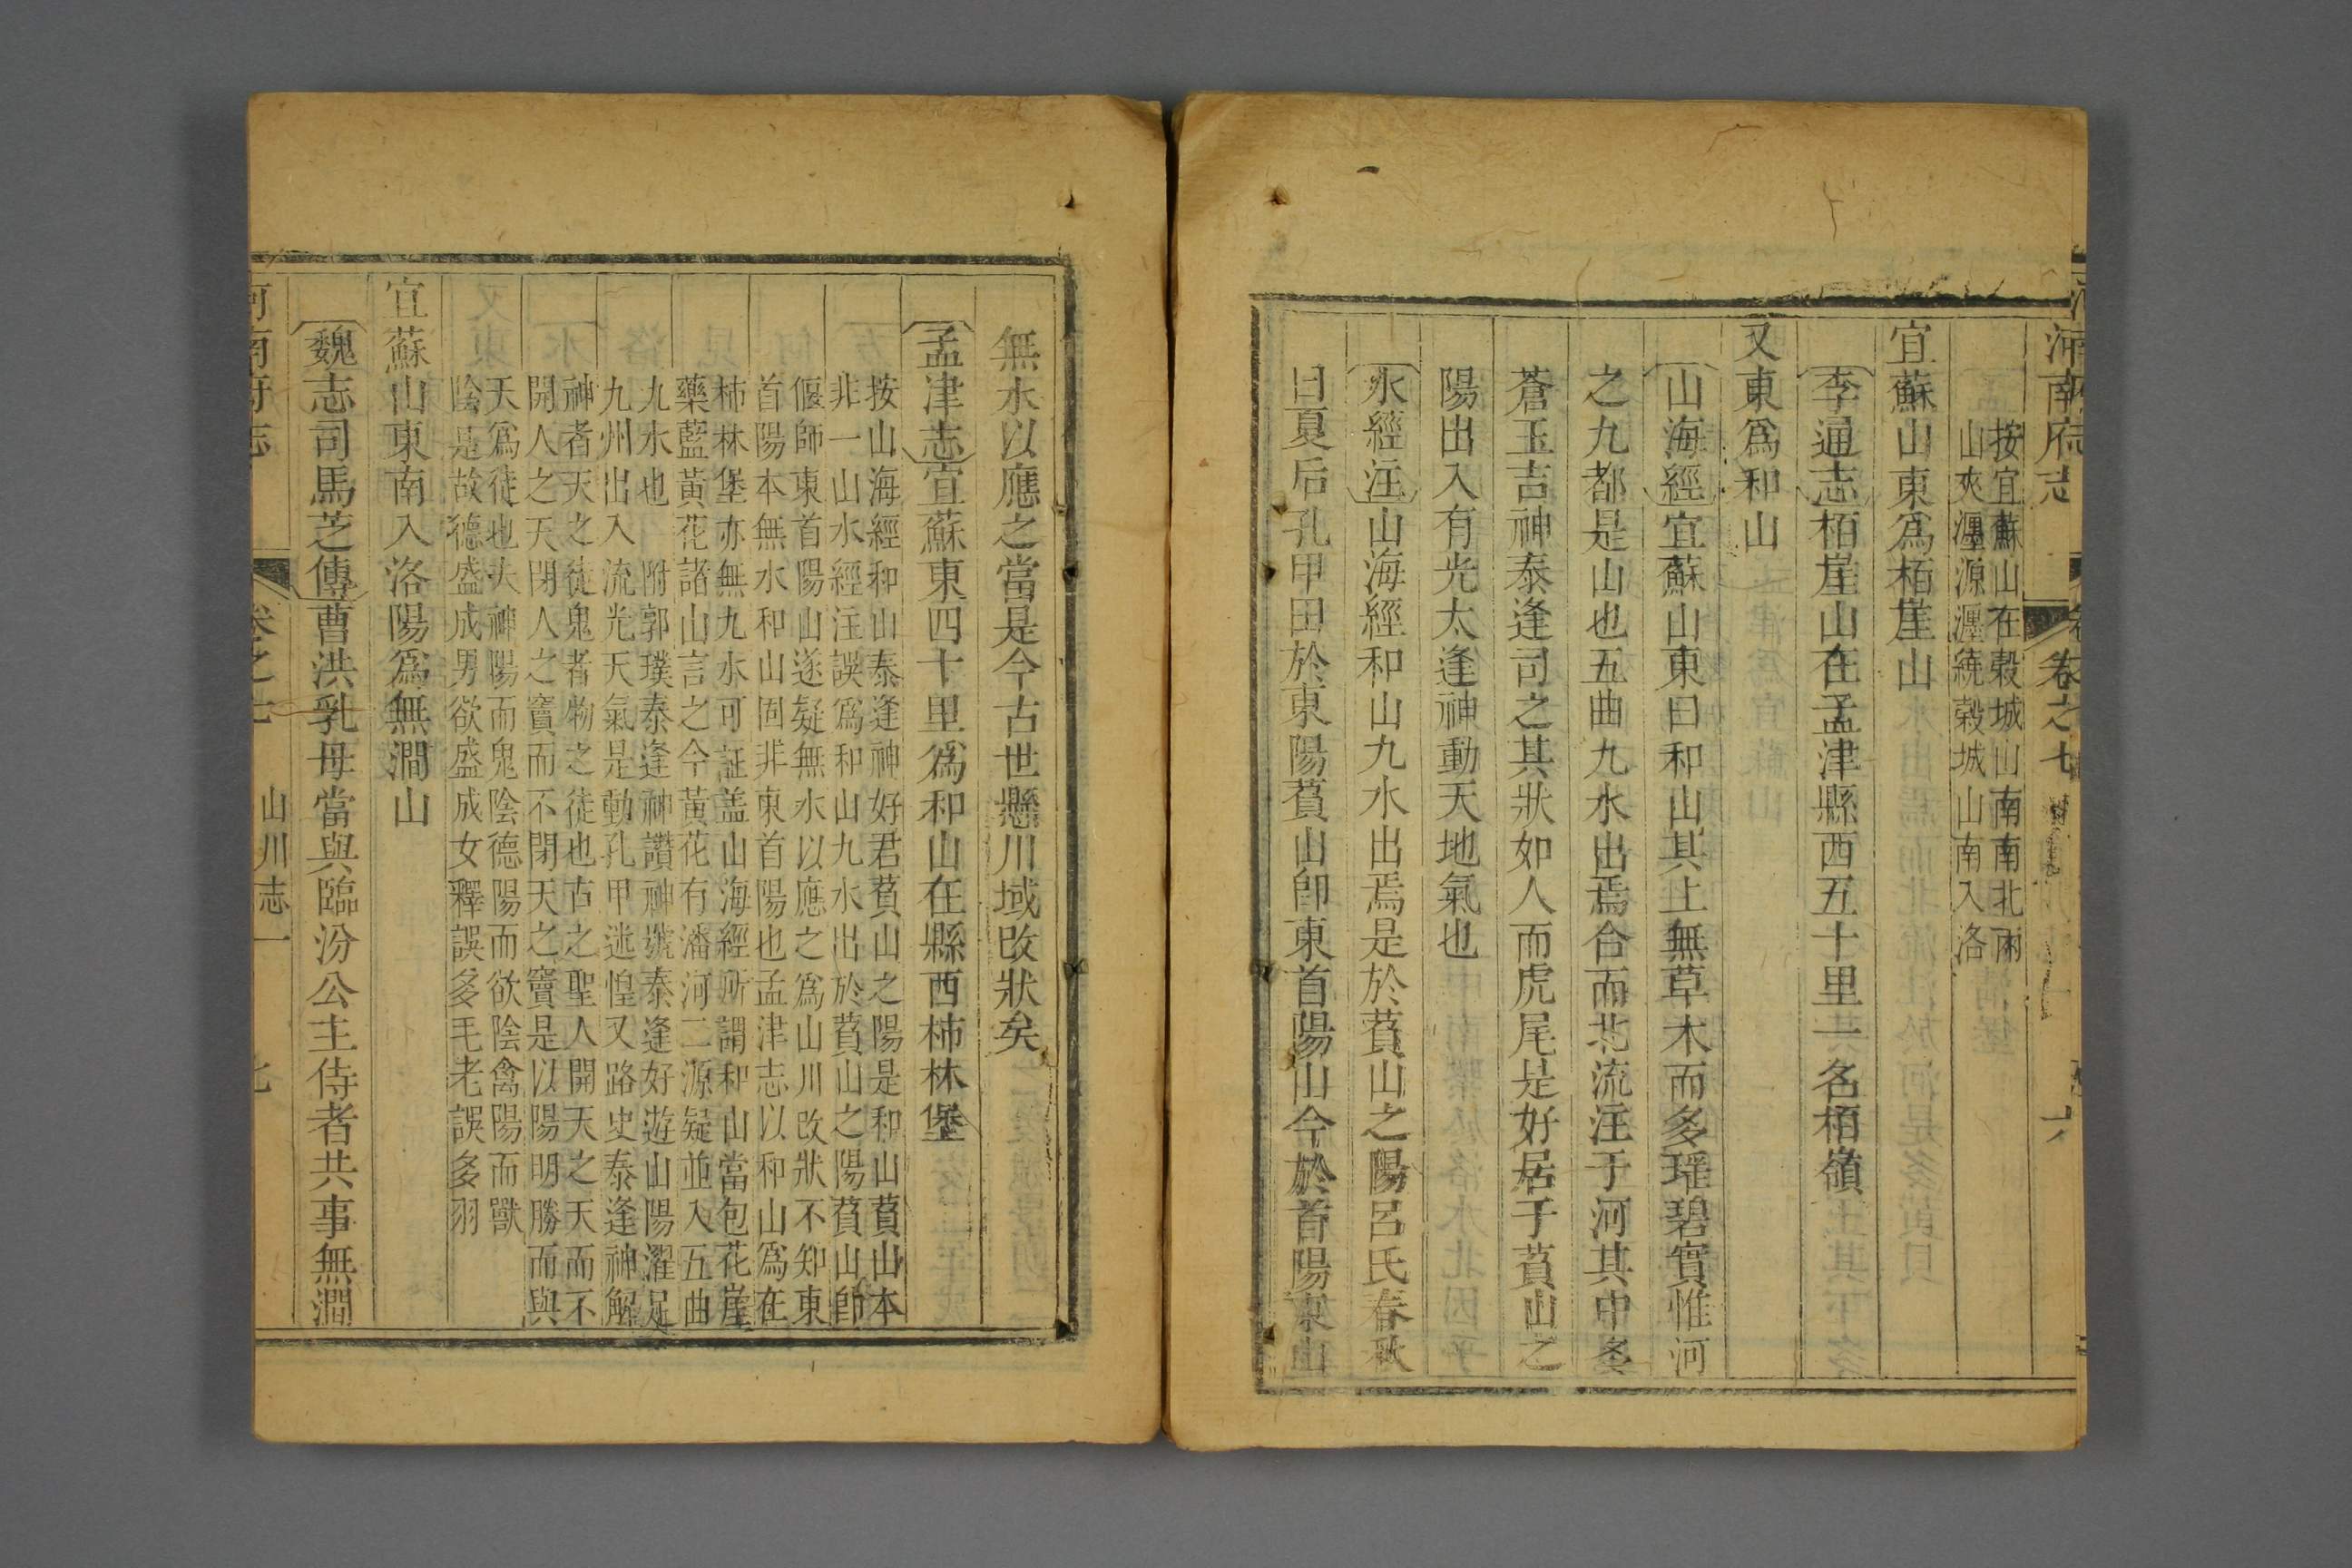 河南府志 卷之七 六
按宜蘇山在穀城山南南北兩
山夾瀍源瀍繞穀城山南入洛
宜蘇山東爲栢崖山
李通志栢崖山在孟津縣西五十里一名栢嶺
又東爲和山
山海經宜蘇山東曰和山其上無草木而多瑶碧實惟河
之九都是山也五曲九水出焉合而北流注于河其中多
蒼玉吉神泰逢司之其狀如人而虎尾是好居于萯山之
陽出入有光太逢神動天地氣也
水經注山海經和山九水出焉是於萯山之陽呂氏春秋
曰夏后孔甲田於東陽萯山卽東首陽山今於首陽東山
無水以應之當是今古世懸川域改狀矣
孟津志宜蘇東四十里爲和山在縣西柿林堡
按山海經和山泰逢神好君萯山之陽是和山萯山本
非一山水經注誤爲和山九水出於萯山之陽萯山卽
偃師東首陽山遂疑無水以應之爲山川改狀不知東
首陽本無水和山固非東首陽也孟津志以和山爲在
柿林堡亦無九水可証盖山海經所謂和山當包花崖
藥藍黃花諸山言之今黃花有潘河二源疑並入五曲
九水也 附郭璞泰逢神讚神號泰逢好遊山陽濯足
九州出入流光天氣是動孔甲迷惶又路史泰逢神解
神者天之徒鬼者物之徒也古之聖人開天之天而不
開人之天閉人之竇而不閉天之竇是以陽明勝而與
天爲徒也夫神陽而鬼陰德陽而欲陰禽陽而獸
陰是故德盛成男欲盛成女釋誤多毛老誤多羽
宜蘇山東南入洛陽爲無澗山
魏志司馬芝傳曹洪乳母當與臨汾公主侍者共事無澗
河南府志 卷之七 山川志一 七